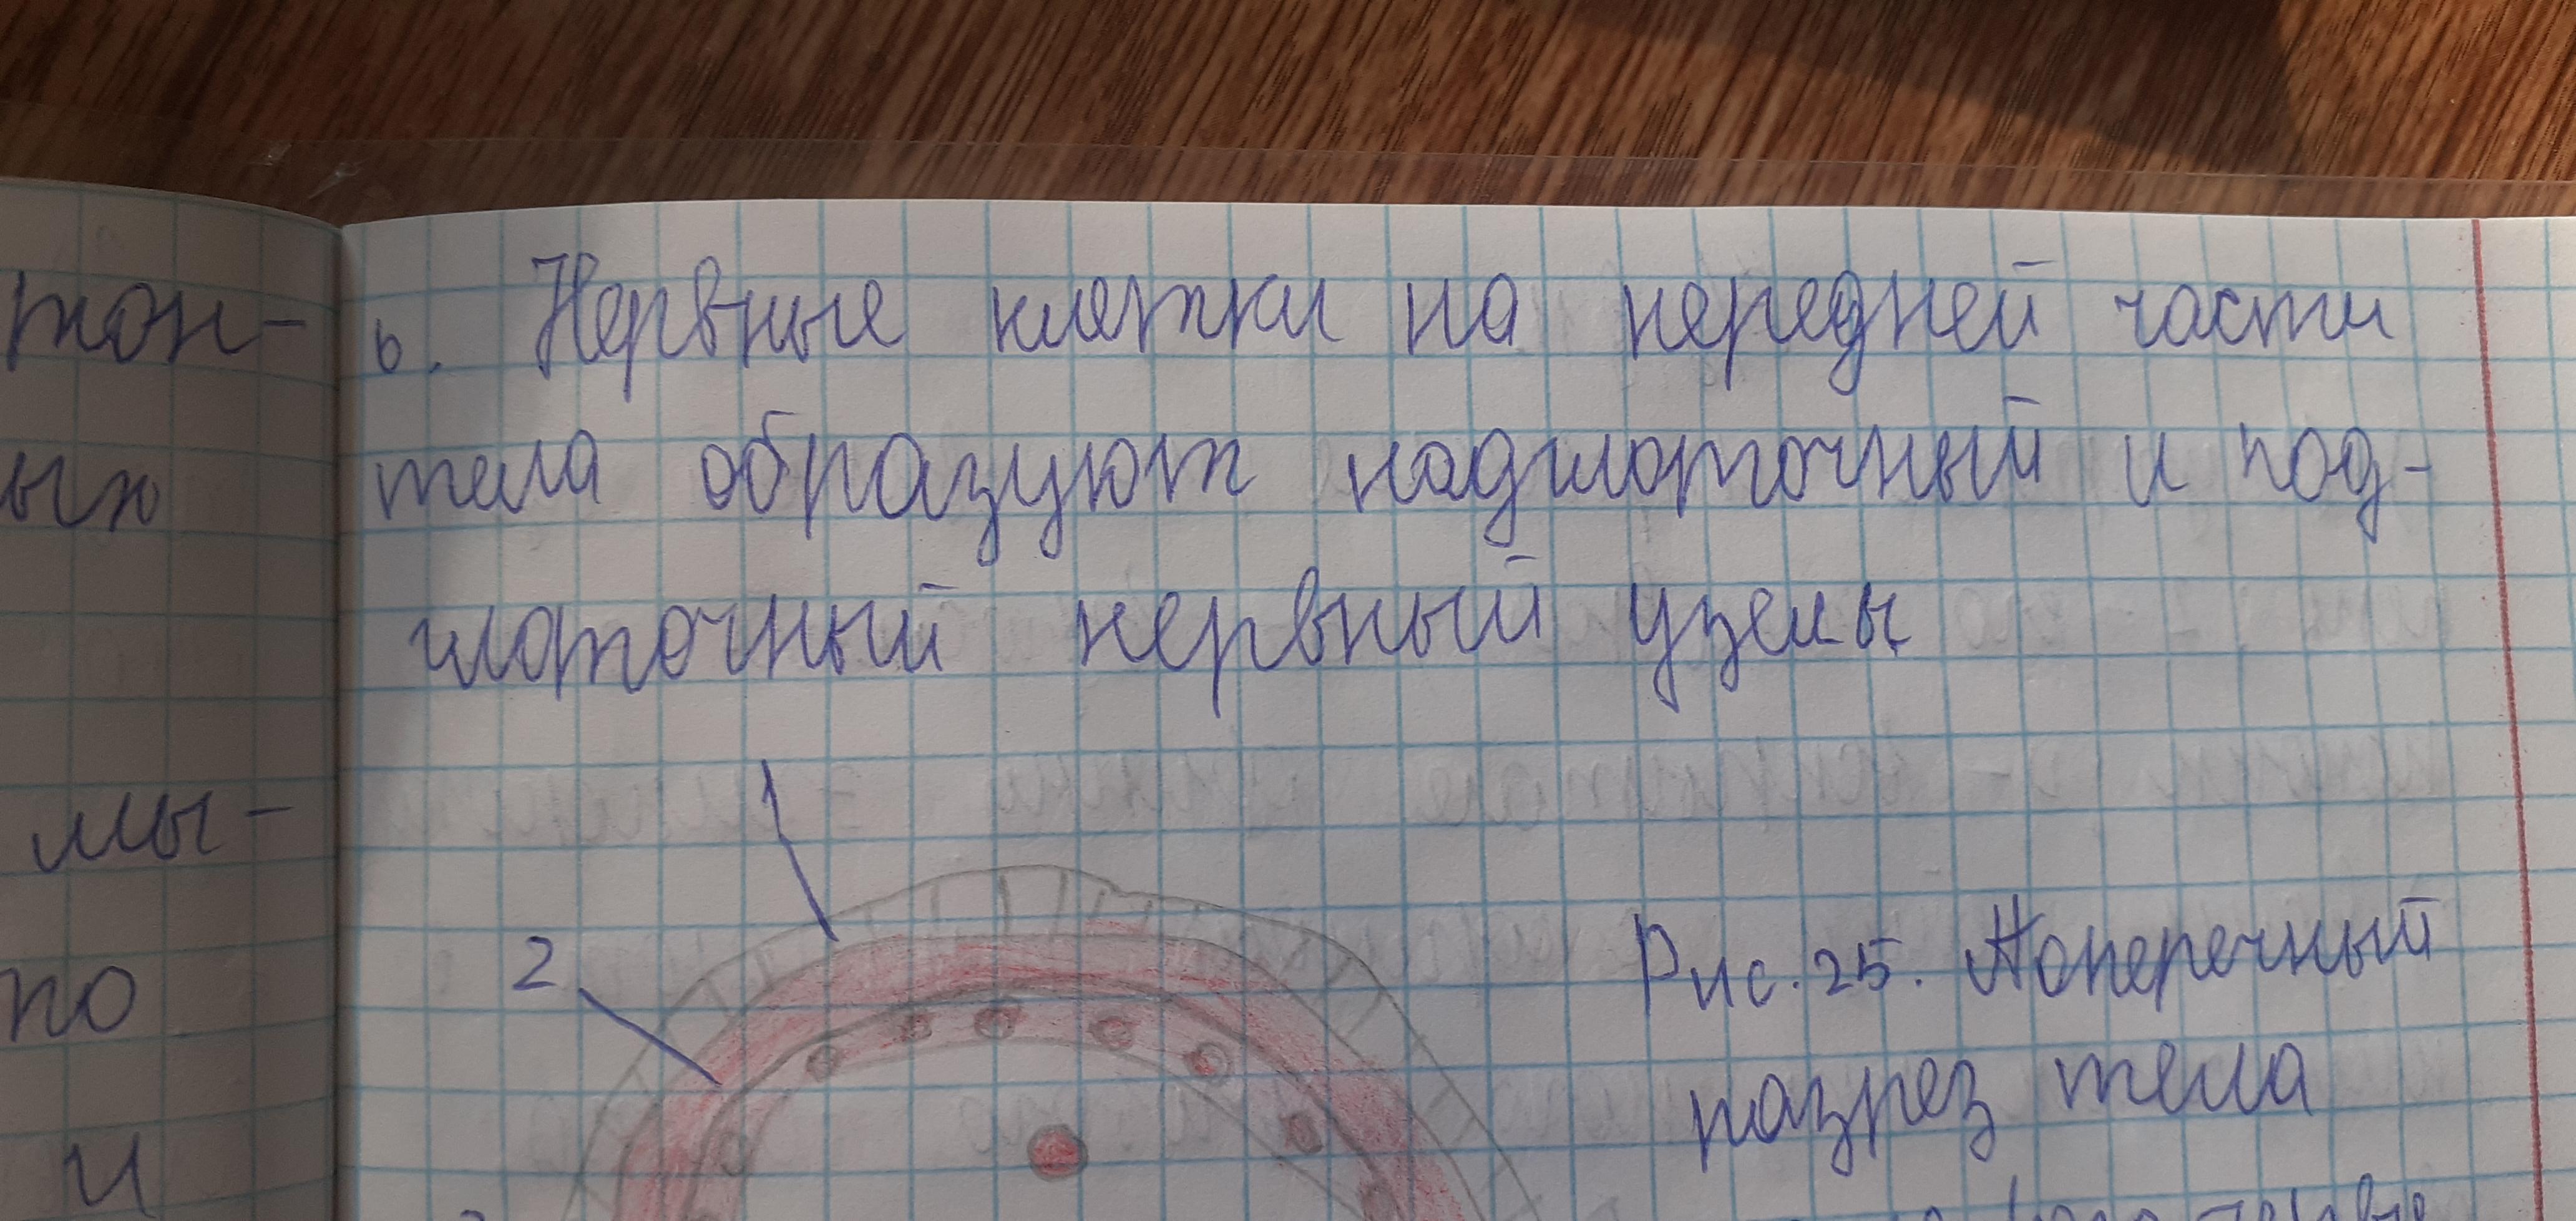 тон-
ых
мы-
по
и
6. Нервные клетки на передней части
тела образуют надглоточный и под-
глоточный нервный узелы
1
2
Рис. 25. Поперечный
разрез тела